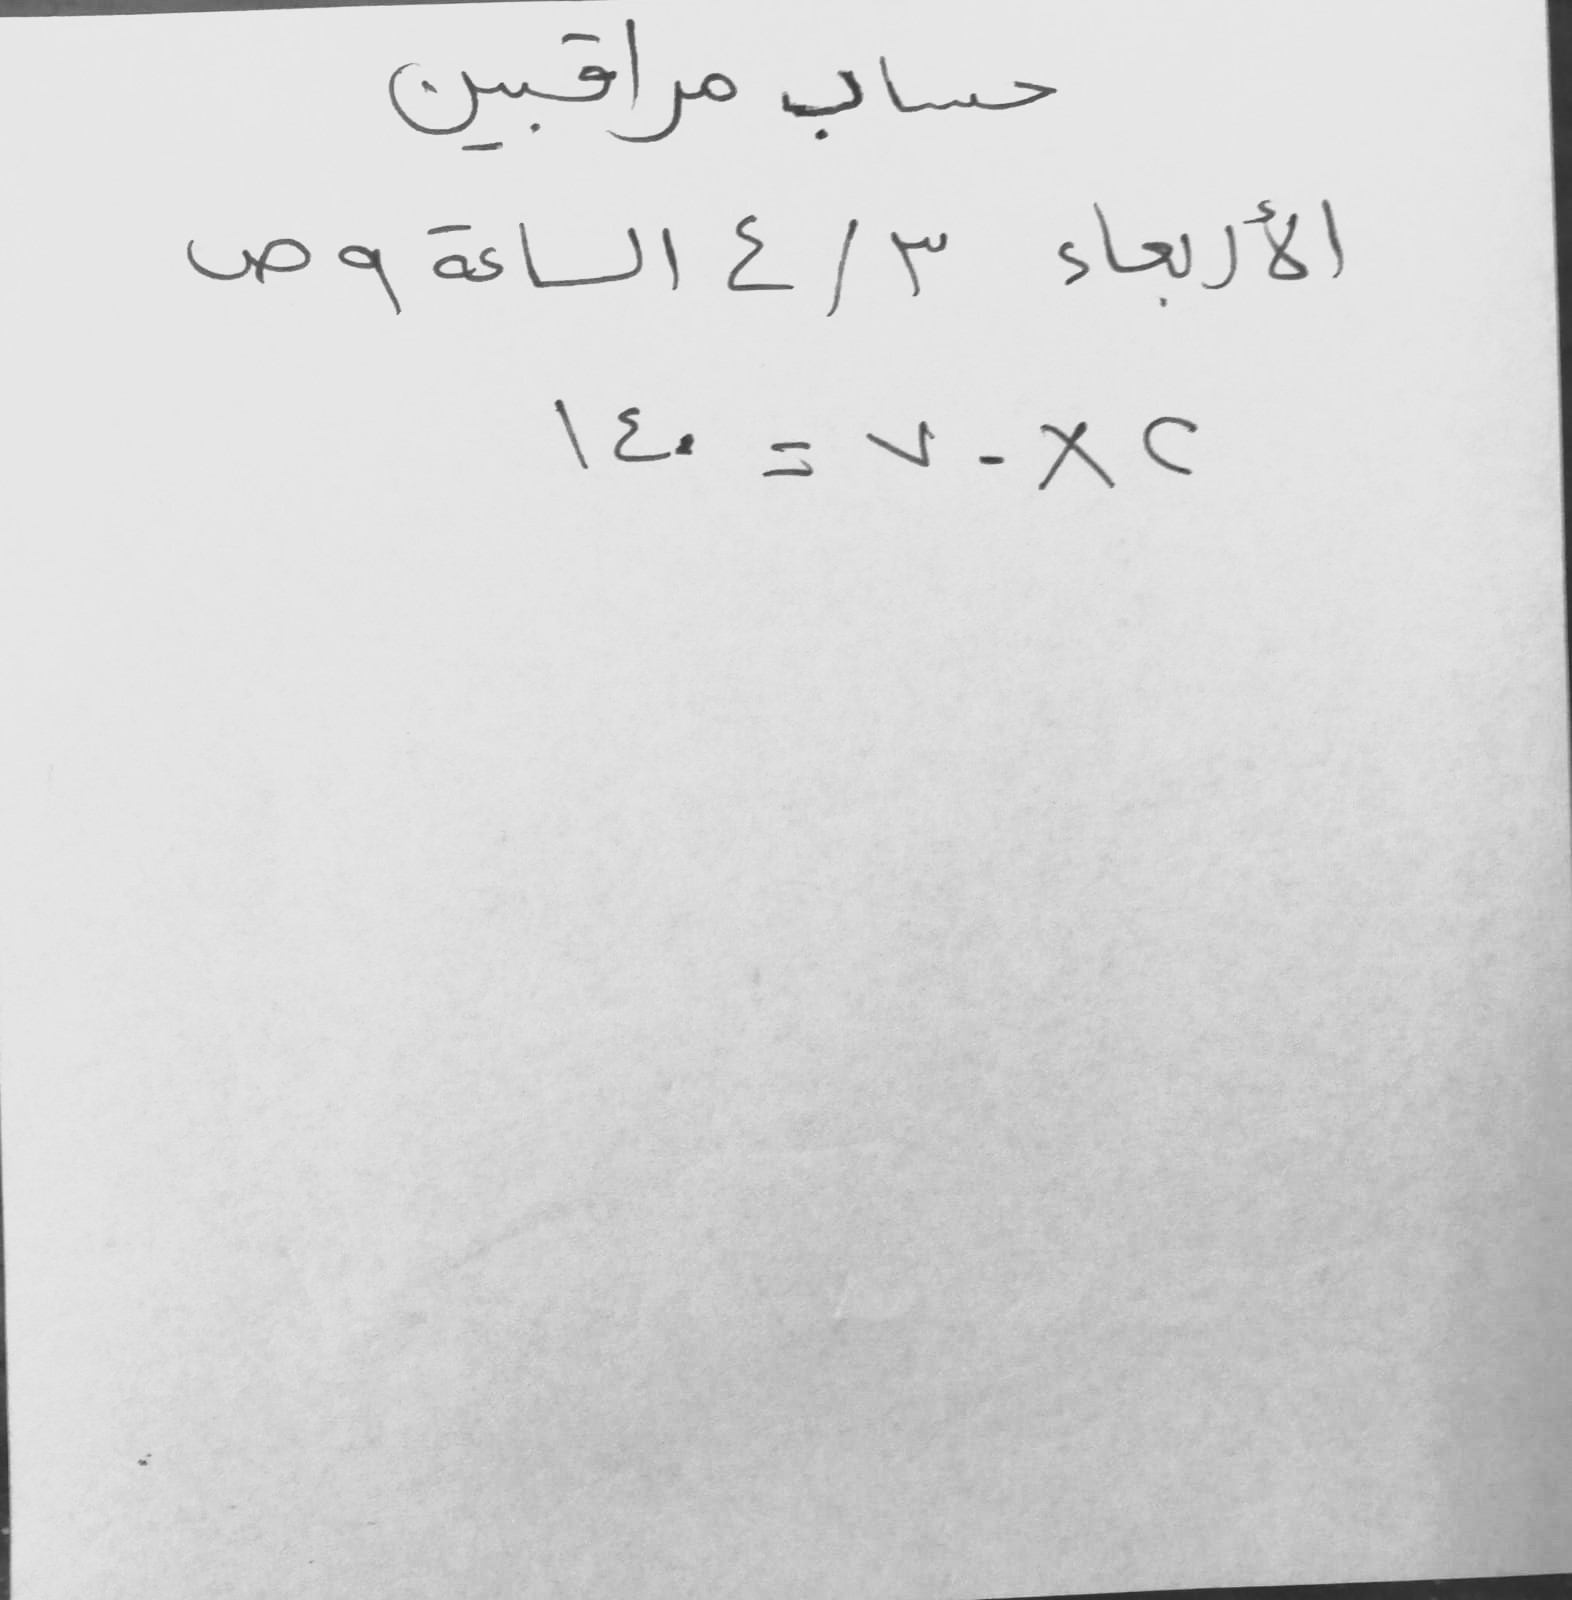 حساب مراقبين
الأربعاء ٣ / ٤ الساعة ٩ ص
٢ × ٧٠ = ١٤٠